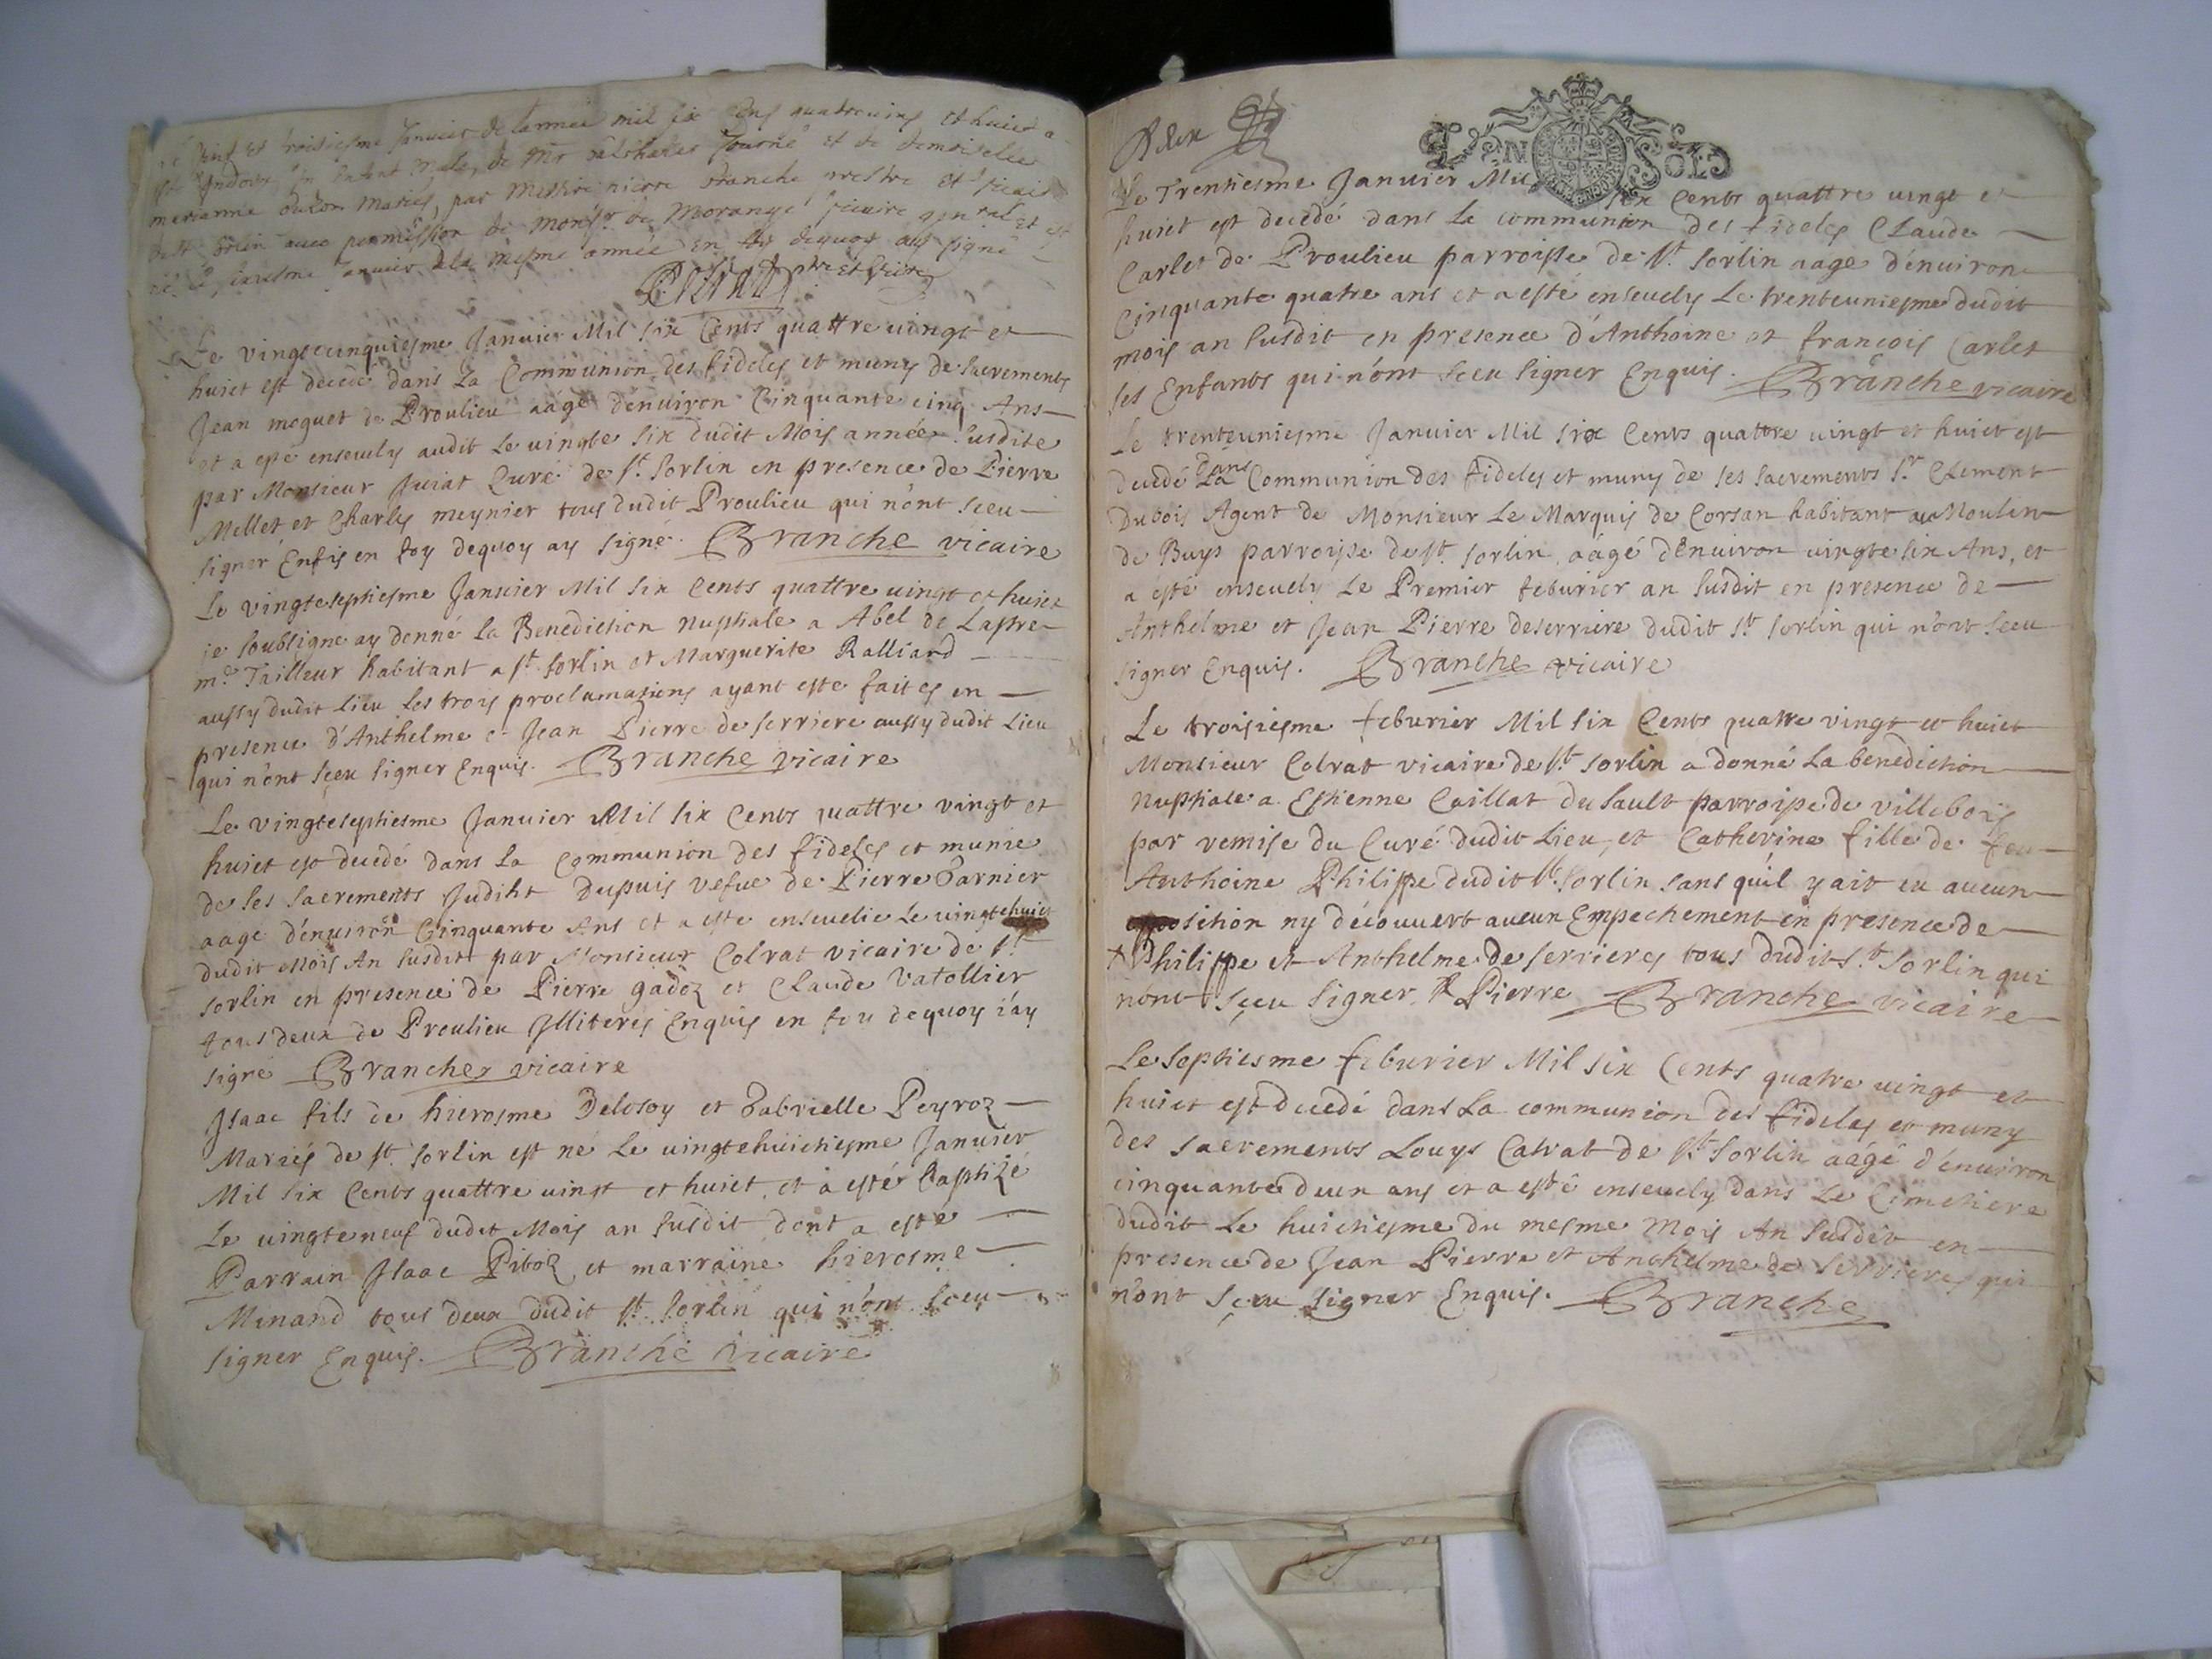 Janvier de lannée mil six cens quatrevins et huict a
un enfant male, de et de demoiselle
marianne mariés, par messire pierre branche prestre et vicaire
de st sorlin avec permission de monsr de Morange vicaire et
Janvier de la mesme année en foy dequoy ay signé
Colrat
Le vingtecinquiesme Janvier Mil six Cents quattre vingt et
huict est decedé dans la Communion des fideles et muny de sacrements
Jean moguet de Proulieu aagé d'enuiron Cinquante cinq Ans
et a esté enseuely audit Le uingte six dudit Mois année susdite
par Monsieur Juiat Curé de st. Sorlin en presence de Pierre
Millet et Charles meynier tous dudit Proulieu qui n'ont sceu
signer Enqis en foy dequoy ay signé. Branche vicaire
Le vingteseptiesme Janvier Mil six Cents quattre uingt et huict
je soubsigne ay donné la Benediction nuptiale a Abel de Laspre
me. Tailleur habitant a st. sorlin et Marguerite Ralliard
aussy dudit lieu les trois proclamations ayant esté faites en
presence d'Anthelme et Jean Pierre de serriere aussy dudit Lieu
qui n'ont sçeu signer Enquis. Branche vicaire
Le vingteseptiesme Janvier Mil six Cents quattre vingt et
huict est decedé dans la Communion des fideles et munie
de ses sacrements Judiht Dupuis vefue de Pierre Garnier
aagé d'enuiron Cinquante Ans et a esté enseuelie Le uingtehuict
dudit Mois An susdit par Monsieur Colrat vicaire de st.
sorlin en presence de Pierre gadoz et Claude Vatollier
tous deux de Proulieu Jlliteres Enquis en foy dequoy i'ay
signé Branche vicaire
Jsaac fils de hierosme Delosoy et Gabrielle Peyroz
Mariés de st. sorlin est né Le uingtehuictiesme Januier
Mil six Cents quattre uingt et huict, et a esté Baptizé
Le uingteneuf dudit Mois an susdit dont a esté
Parrain Jsaac Pitoz et marraine hierosme
Minand tous deux dudit st. sorlin qui n'ont sceu
signer Enquis. Branche vicaire
DEN SOLS
Le Trentiesme Januier Mil six Cents quattre uingt et
huict est decedé dans La communion des fideles Claude
Carlet de Proulieu parroisse de st. sorlin aage d'enuiron
Cinquante quatre ans et a esté enseuely Le trenteuniesme dudit
mois an susdit en presence d'Anthoine et françois Carlet
ses Enfants qui n'ont sceu signer Enquis. Branche vicaire
Le trenteuniesme Januier Mil six Cents quattre uingt et huict est
decedé dans La Communion des fideles et muny de ses sacrements sr. Clement
Dubois Agent de Monsieur Le Marquis de Corsan habitant au Moulin
de Buys parroisse de st. sorlin aàgé d'Enuiron uingte six Ans, et
a esté enseuely Le Premier feburier an susdit en presence de
Anthelme et Jean Pierre deserriere dudit st sorlin qui n'ont sceu
signer Enquis. Branche vicaire
Le troisiesme feburier Mil six Cents quatre vingt et huict
Monsieur Colrat vicaire de st. sorlin a donné La benediction
nuptiale a Estienne Caillat du sault parroisse de villebois
par remise du Curé dudit Lieu, et Catherine fille de feu
Anthoine Philippe dudit st. sorlin sans qu'il y ait eu aucun
opposition ny découuert aucun Empechement en presence de
+ Philippe et Anthelme de serrieres tous dudit st sorlin qui
n'ont sçeu signer + Pierre Branche vicaire
Le septiesme feburier Mil six Cents quatre uingt et
huict est decedé dans La communion des fideles et muny
des sacrements Louys Calrat de st. sorlin aàgé d'enuiron
cinquante deux ans et a esté enseuely dans Le Cimetiere
dudit Le huictiesme du mesme Mois An susdit en
presence de Jean Pierre et Anthelme de serrieres qui
n'ont sçeu signer Enquis. Branche